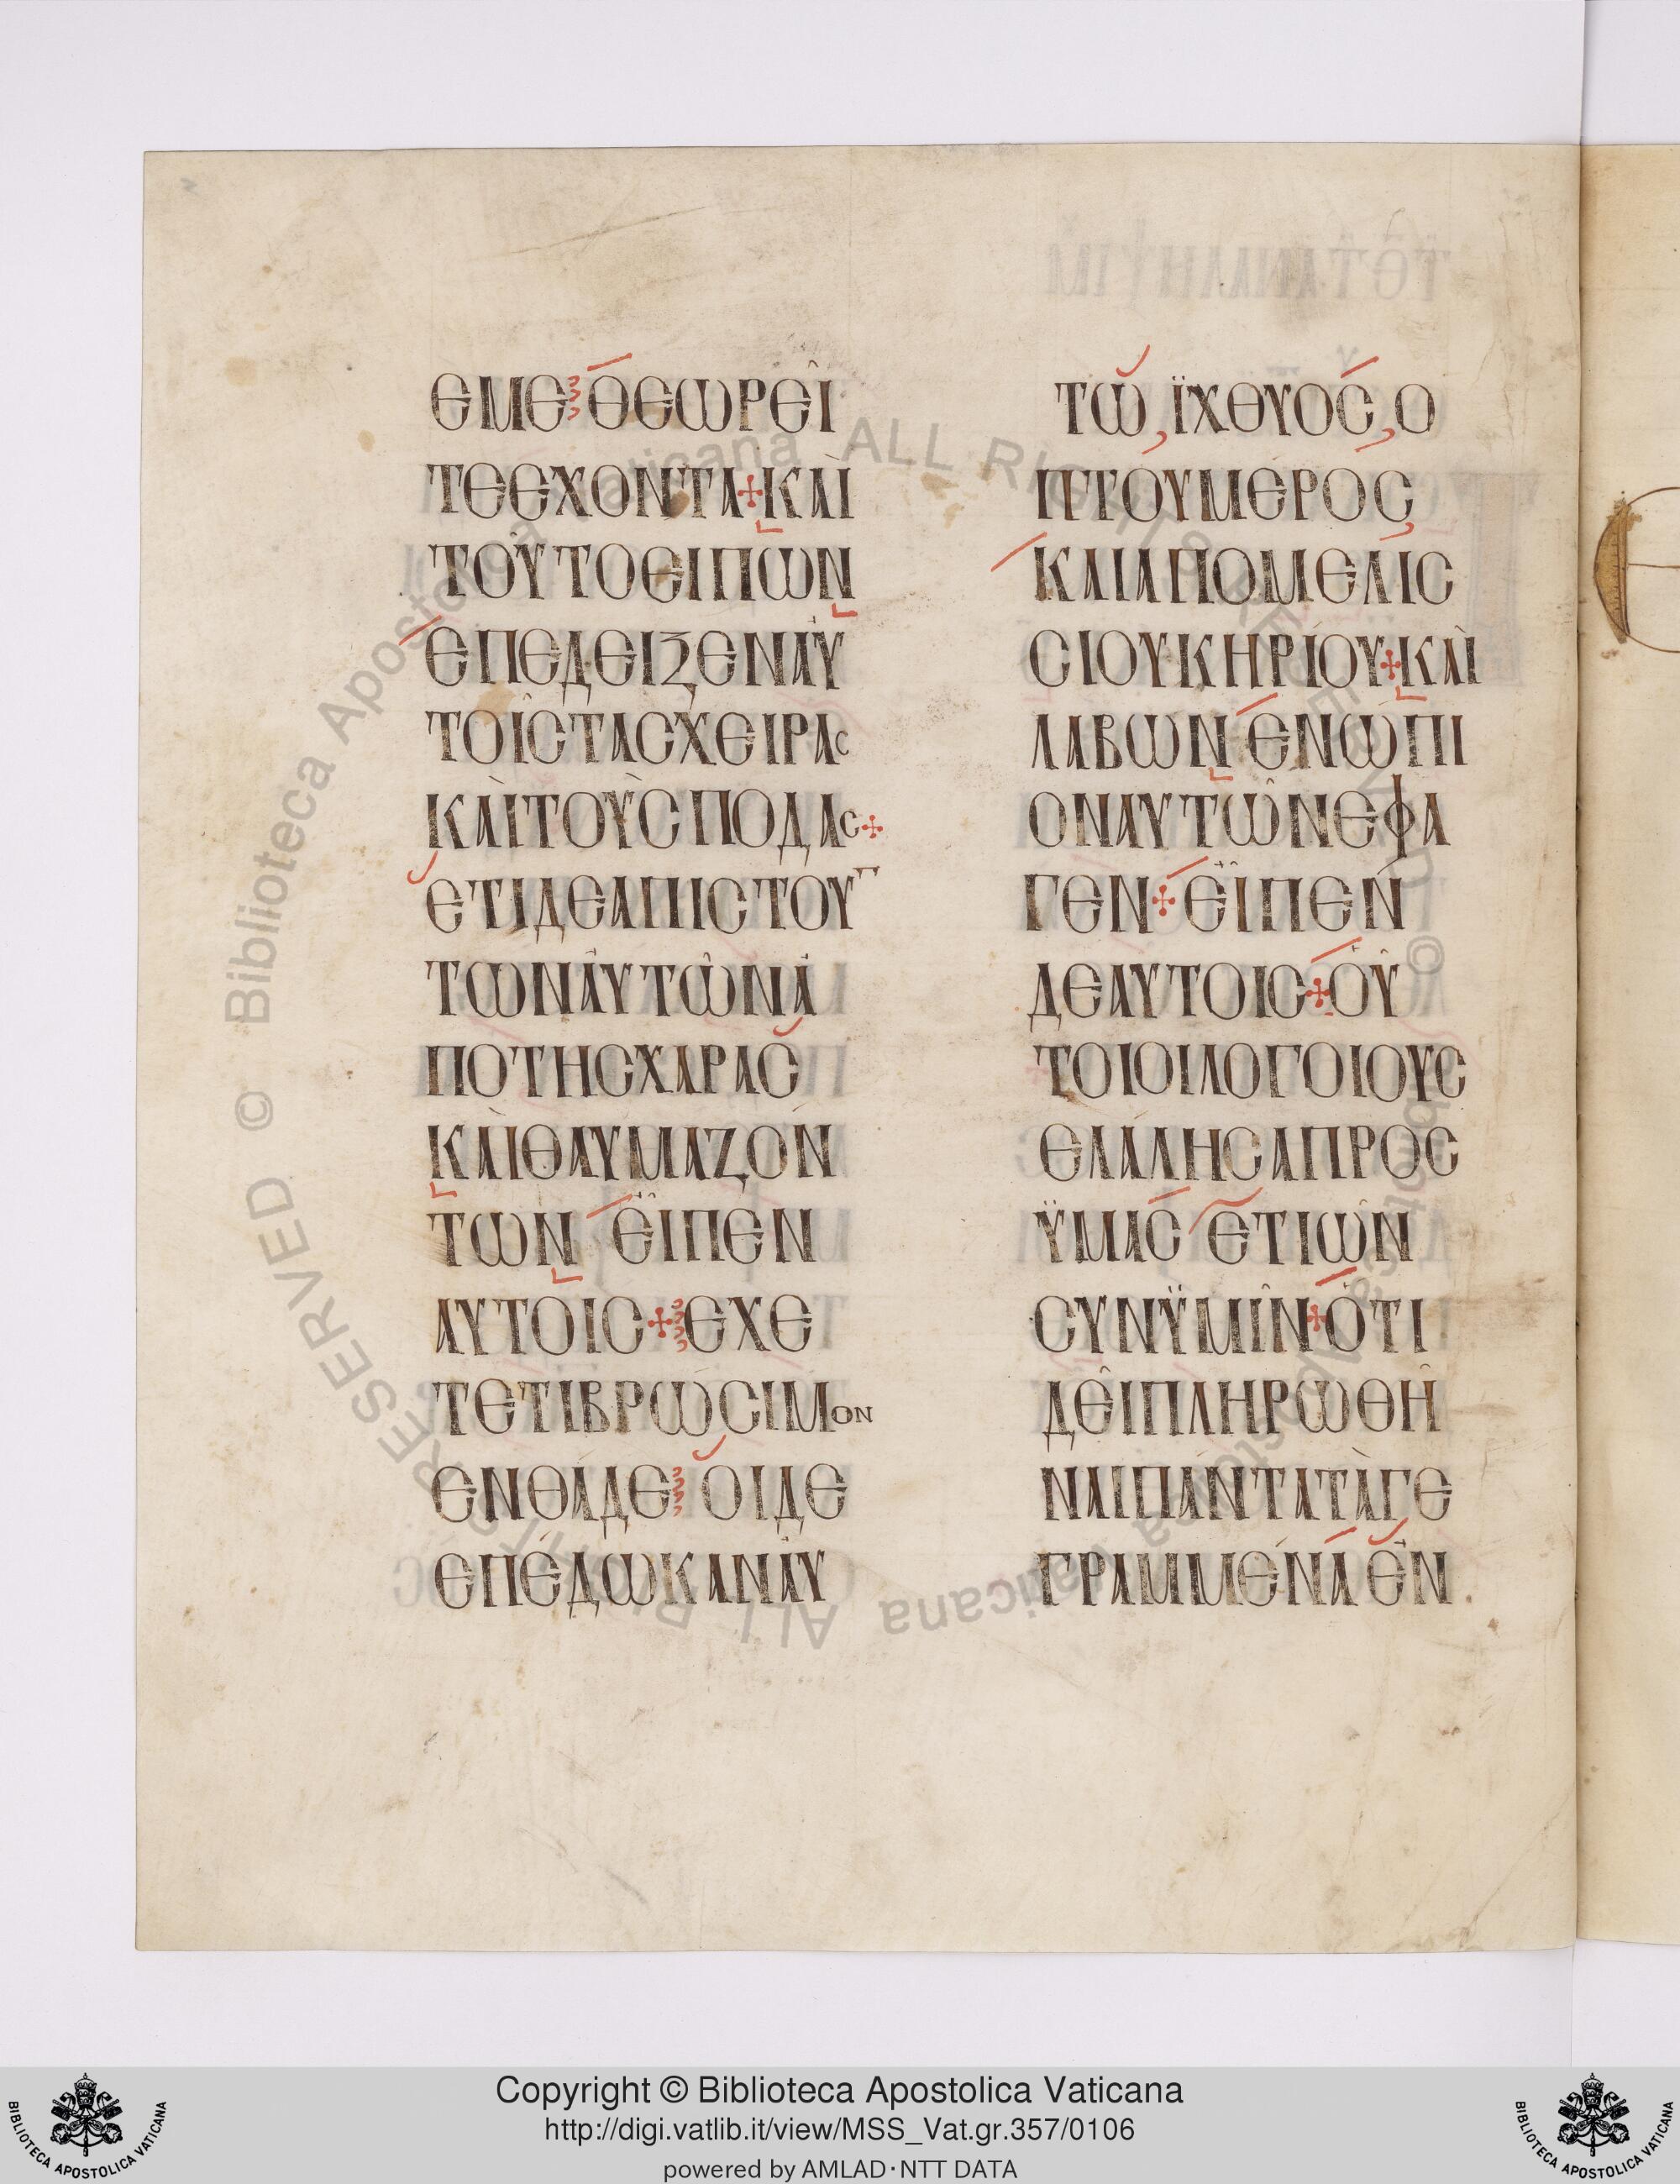 ΕΜΕ ΘΕΩΡΕΙ
ΤΕΕΧΟΝΤΑ+ΚΑΙ
ΤΟΥΤΟΕΙΠΩΝ
ΕΠΕΔΕΙΞΕΝΑΥ
ΤΟΙΣΤΑΣΧΕΙΡΑΣ
ΚΑΙΤΟΥΣΠΟΔΑΣ+
ΕΤΙΔΕΑΠΙΣΤΟΥ
ΤΩΝΑΥΤΩΝΑ
ΠΟΤΗΣΧΑΡΑΣ
ΚΑΙΘΑΥΜΑΖΟΝ
ΤΩΝ ΕΙΠΕΝ
ΑΥΤΟΙΣ+ΕΧΕ
ΤΕΤΙΒΡΩΣΙΜΟΝ
ΕΝΘΑΔΕ ΟΙΔΕ
ΕΠΕΔΩΚΑΝΑΥ
ΤΩ,ΪΧΘΥΟΣ,Ο
ΠΤΟΥΜΕΡΟΣ
ΚΑΙΑΠΟΜΕΛΙΣ
ΣΙΟΥΚΗΡΙΟΥ+ΚΑΙ
ΛΑΒΩΝ ΕΝΩΠΙ
ΟΝΑΥΤΩΝΕΦΑ
ΓΕΝ+ΕΙΠΕΝ
ΔΕΑΥΤΟΙΣ+ΟΥ
ΤΟΙΟΙΛΟΓΟΙΟΥΣ
ΕΛΑΛΗΣΑΠΡΟΣ
ΫΜΑΣ ΕΤΙΩΝ
ΣΥΝΫΜΙΝ+ΟΤΙ
ΔΕΙΠΛΗΡΩΘΗ
ΝΑΙΠΑΝΤΑΤΑΓΕ
ΓΡΑΜΜΕΝΑ ΕΝ
Copyright © Biblioteca Apostolica Vaticana
http://digi.vatlib.it/view/MSS_Vat.gr.357/0106
powered by AMLAD·NTT DATA
BIBLIOTECA APOSTOLICA VATICANA
BIBLIOTECA APOSTOLICA VATICANA